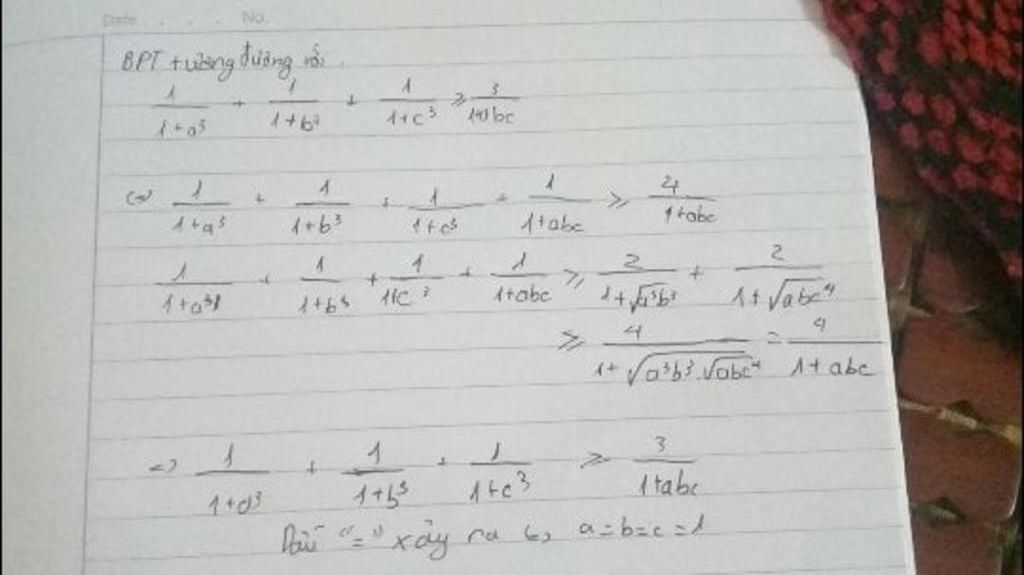 Date . . . . No.
BPT tương đương với.
1/(1+a³) + 1/(1+b³) + 1/(1+c³) ≥ 3/(1+abc)
(=) 1/(1+a³) + 1/(1+b³) + 1/(1+c³) + 1/(1+abc) ≥ 4/(1+abc)
1/(1+a³) + 1/(1+b³) + 1/(1+c³) + 1/(1+abc) ≥ 2/(1+√(a³b³)) + 2/(1+√(abc⁴))
≥ 4/(1+√(a³b³.√(abc⁴))) = 4/(1+abc)
=) 1/(1+a³) + 1/(1+b³) + 1/(1+c³) ≥ 3/(1+abc)
Dấu "=" xảy ra (=) a=b=c=1